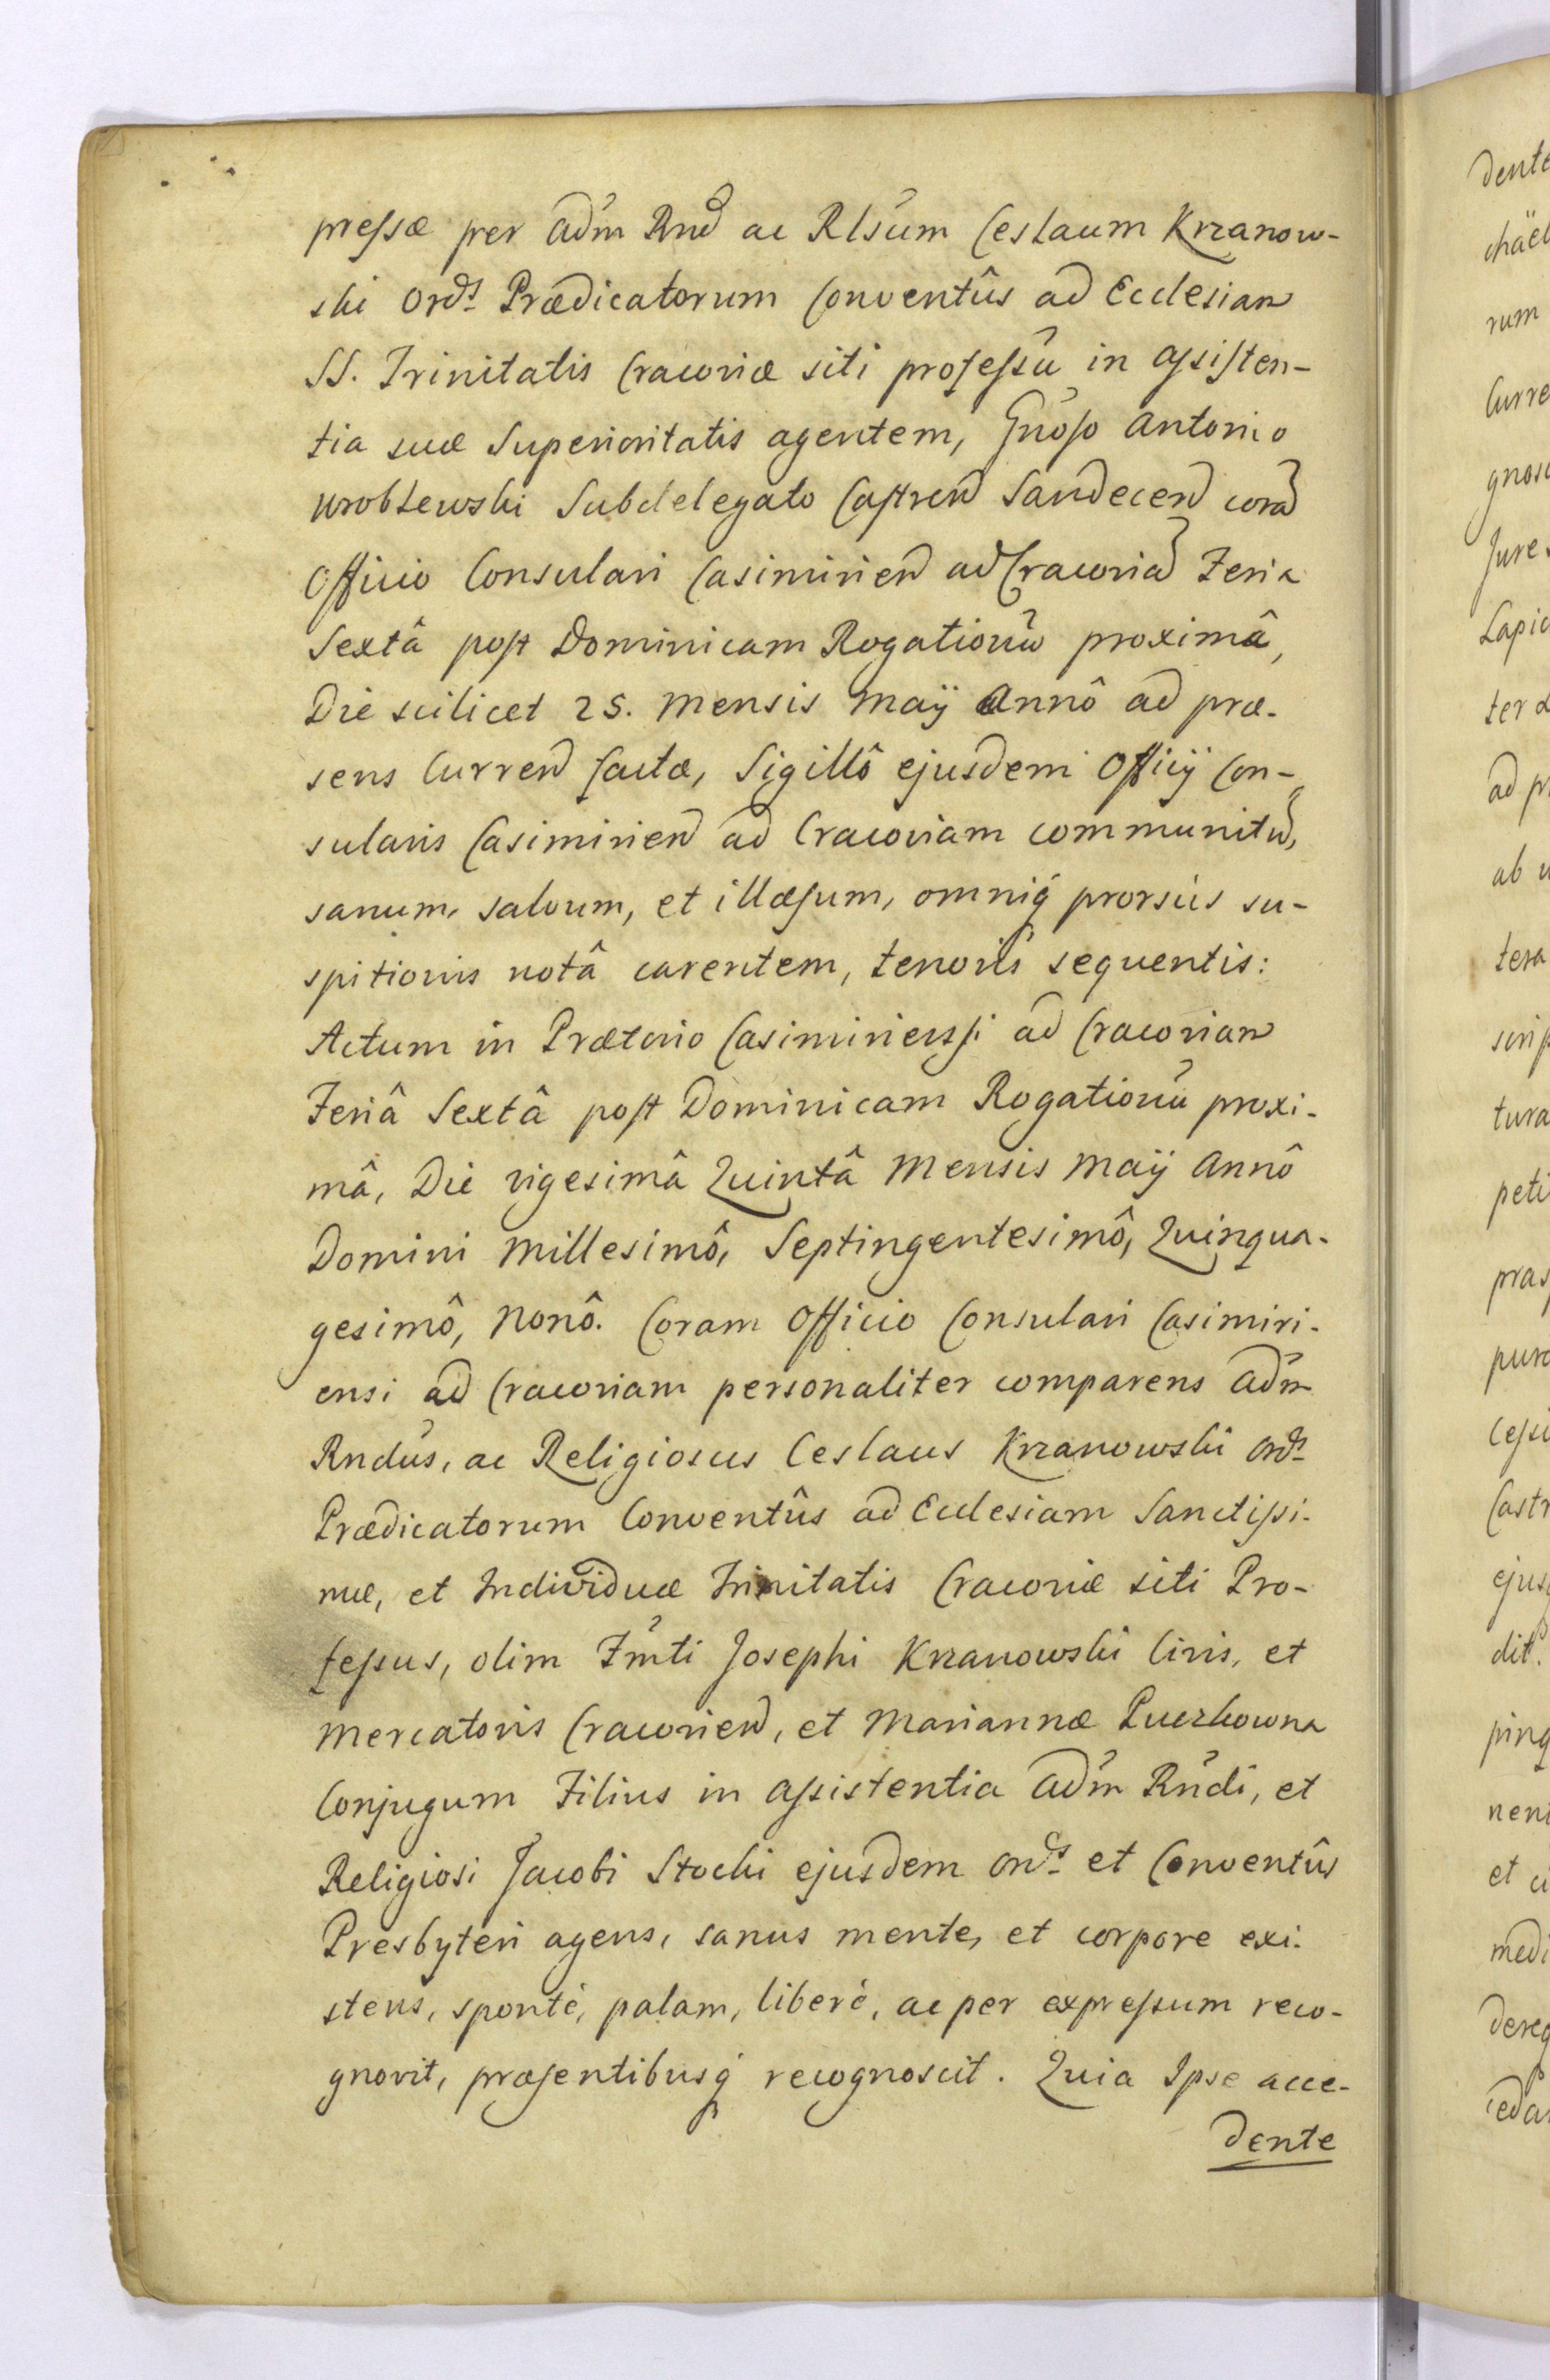 pressæ per Adm̃ Rnd̃ ac Rlsũm Ceslaum Krzanow-
ski Ordis Prædicatorum Conventûs ad Ecclesiam
SS. Trinitatis Cracoviæ siti professũ in assisten-
tia suæ Superioritatis agentem, Gñoso Antonio
Wroblewski Subdelegato Castren̄ Sandecen̄ corã
Officio Consulari Casimirien̄ ad Cracoviã Feria
Sextâ post Dominicam Rogationũ proximâ,
Die scilicet 25. Mensis Maÿ Annô ad præ-
sens Curren̄ factæ, Sigillô ejusdem Officÿ Con-
sularis Casimirien̄ ad Cracoviam communitũ,
sanum, salvum, et illæsum, omniq̃ prorsùs su-
spitionis notâ carentem, tenoris sequentis:
Actum in Prætorio Casimiriensi ad Cracoviam
Feriâ Sextâ post Dominicam Rogationũ proxi-
mâ, Die vigesimâ Quintâ Mensis Maÿ Annô
Domini Millesimô, Septingentesimô, Quinqua-
gesimô, Nonô. Coram Officio Consulari Casimiri-
ensi ad Cracoviam personaliter comparens Adm̃
Rndũs, ac Religiosus Ceslaus Krzanowski Ordis
Prædicatorum Conventûs ad Ecclesiam Sanctissi-
mæ, et Individuæ Trinitatis Cracoviæ siti Pro-
fessus, olim Fm̃ti Josephi Krzanowski Civis, et
Mercatoris Cracovien̄, et Mariannæ Puczkowna
Conjugum Filius in assistentia Adm̃ Rñdi, et
Religiosi Jacobi Stocki ejusdem Ordis et Conventûs
Presbyteri agens, sanus mente, et corpore exi-
stens, spontè, palam, liberè, ac per expressum reco-
gnovit, præsentibusq̃ recognoscit. Quia Ipse acce-
dente